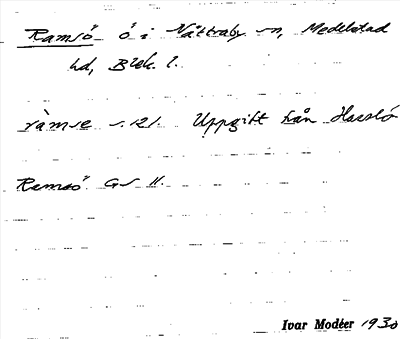 Ramsö ö i Nättraby sn, Medelstad
hd, Blek. l.
ràmse s. 121. Uppgift från Hasslö
Ramsö. GS 11.
Ivar Modéer 1930